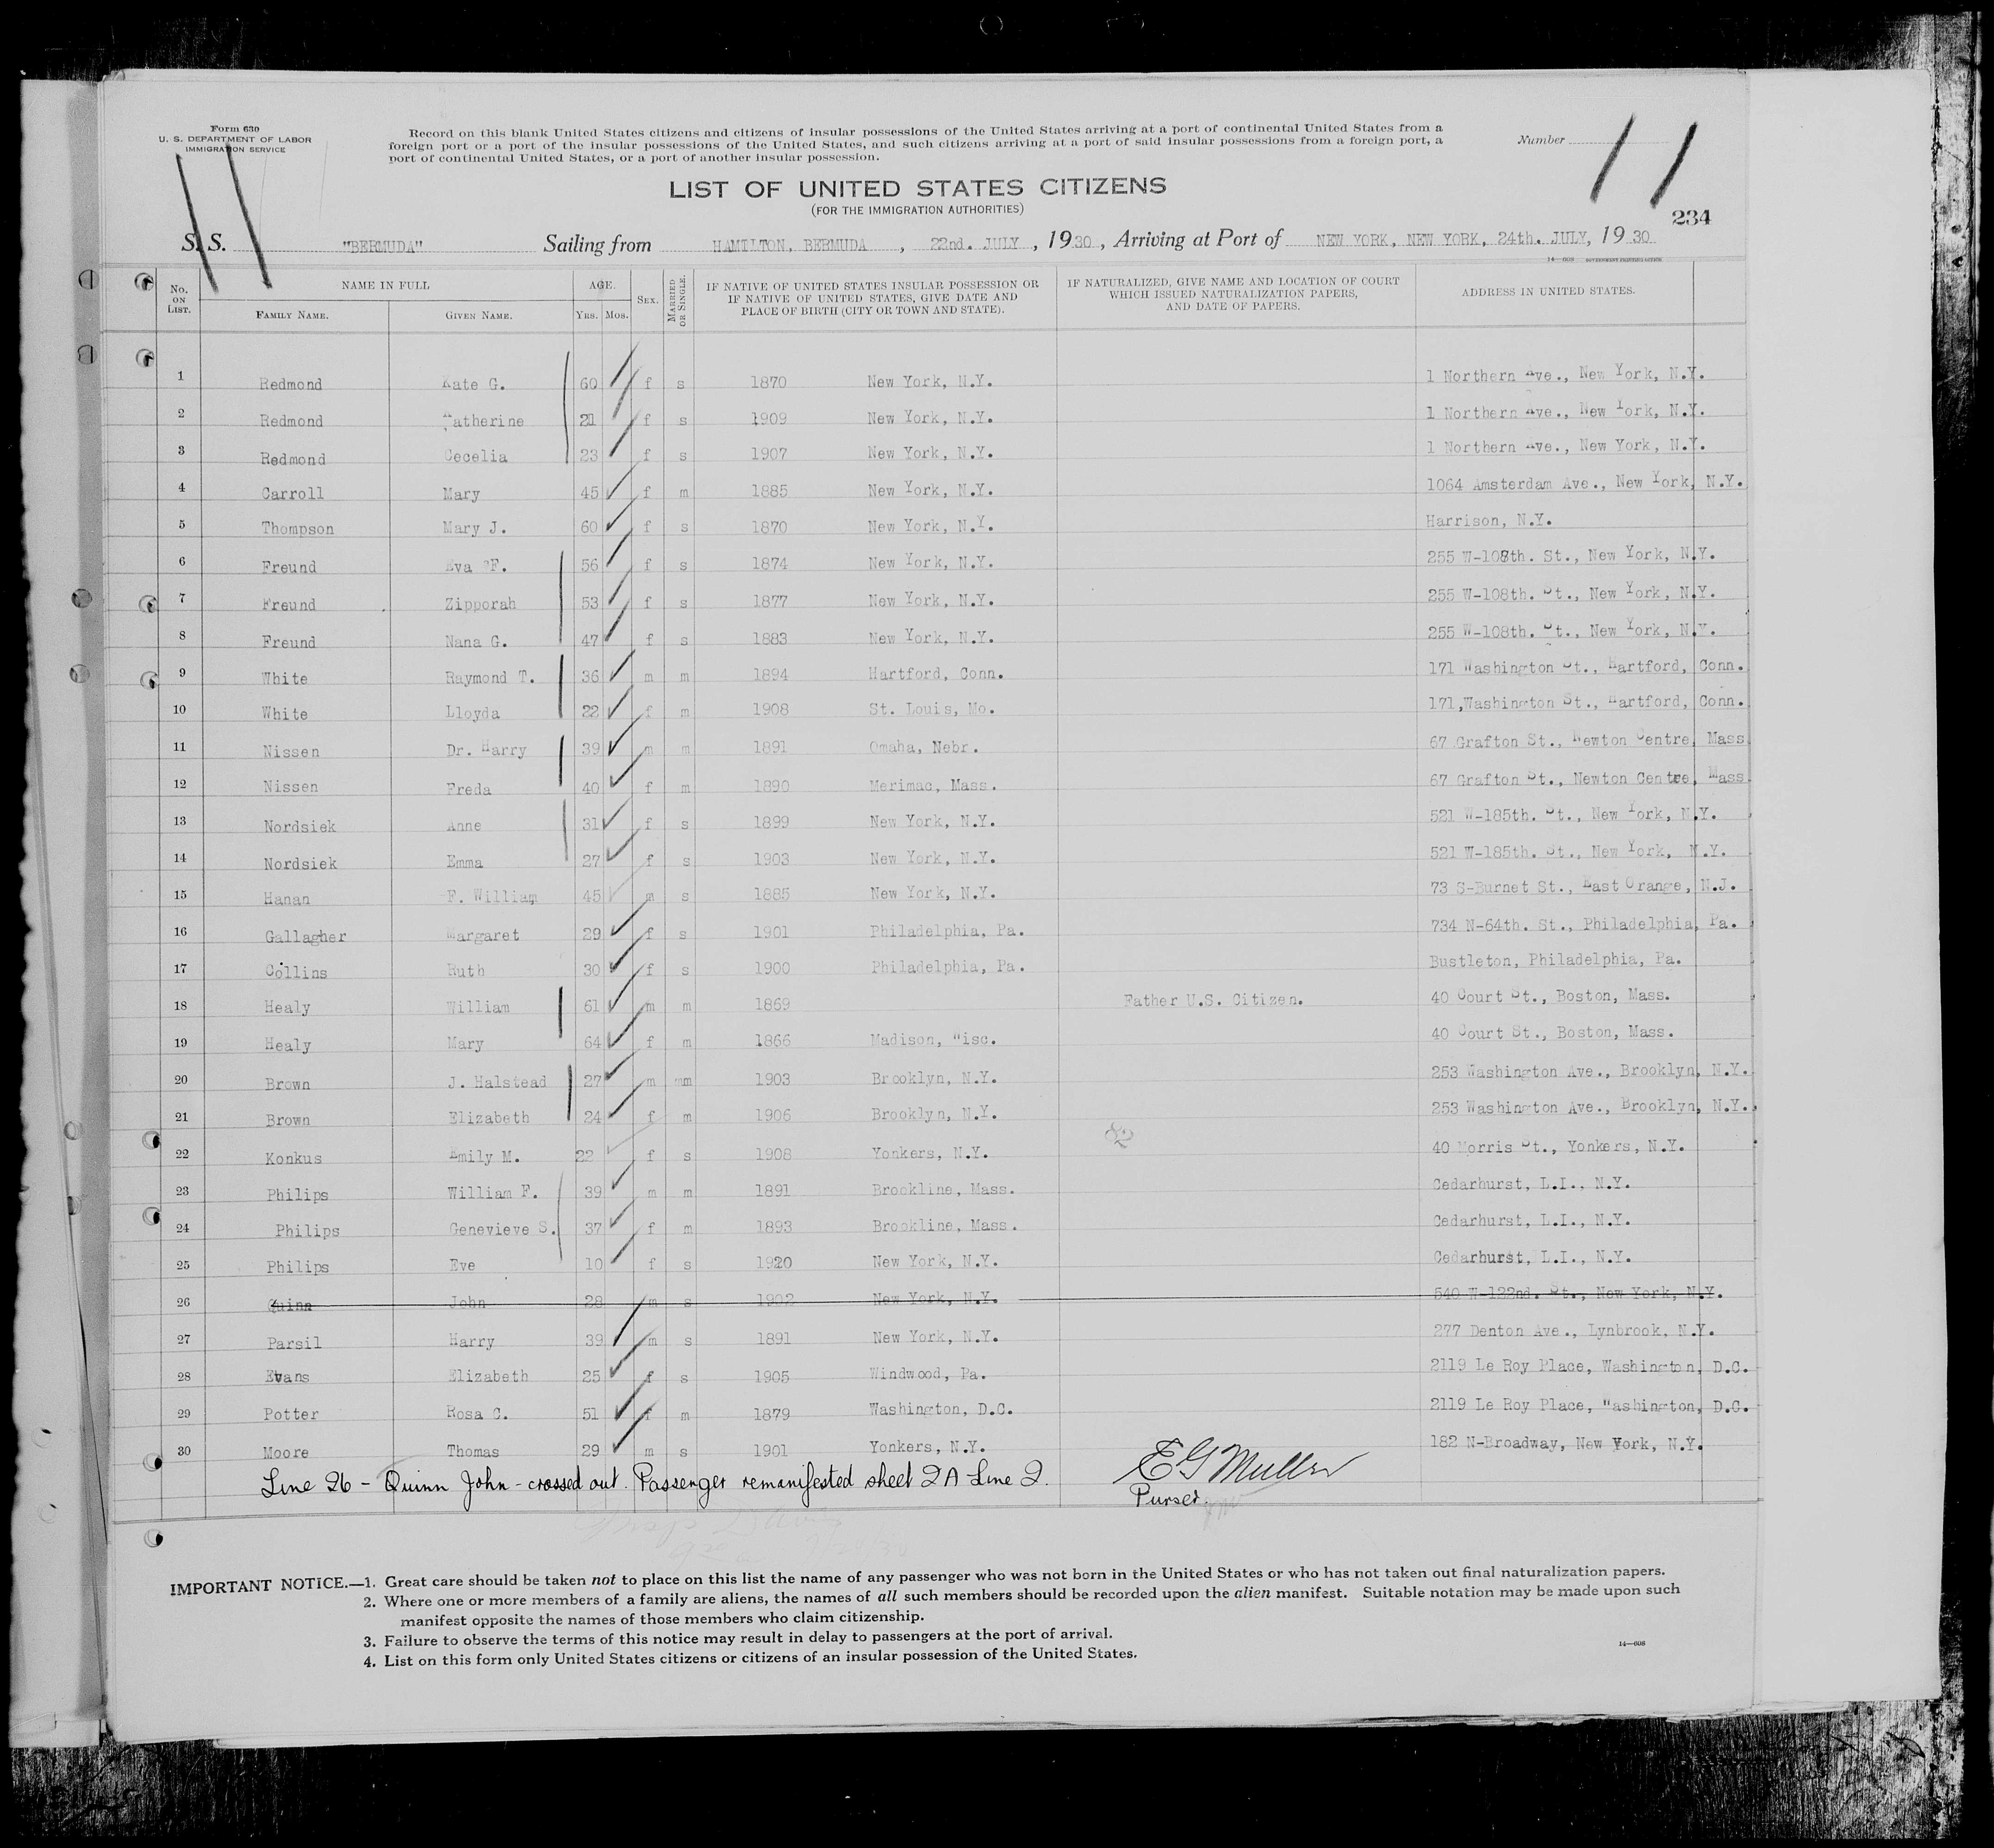 Form 630
U. S. DEPARTMENT OF LABOR
IMMIGRATION SERVICE
Record on this blank United States citizens and citizens of insular possessions of the United States arriving at a port of continental United States from a
foreign port or a port of the insular possessions of the United States, and such citizens arriving at a port of said insular possessions from a foreign port, a
port of continental United States, or a port of another insular possession.
Number
11 11
LIST OF UNITED STATES CITIZENS
(FOR THE IMMIGRATION AUTHORITIES)
234
S. S. "BERMUDA" Sailing from HAMILTON, BERMUDA , 22nd. JULY , 1930 , Arriving at Port of NEW YORK, NEW YORK, 24th. JULY, 1930
14—608 GOVERNMENT PRINTING OFFICE
No. ON LIST. NAME IN FULL FAMILY NAME. GIVEN NAME. AGE. YRS. MOS. SEX. MARRIED OR SINGLE. IF NATIVE OF UNITED STATES INSULAR POSSESSION OR IF NATIVE OF UNITED STATES, GIVE DATE AND PLACE OF BIRTH (CITY OR TOWN AND STATE). IF NATURALIZED, GIVE NAME AND LOCATION OF COURT WHICH ISSUED NATURALIZATION PAPERS, AND DATE OF PAPERS. ADDRESS IN UNITED STATES.
1 Redmond Kate G. 60 f s 1870 New York, N.Y. 1 Northern Ave., New York, N.Y.
2 Redmond Katherine 21 f s 1909 New York, N.Y. 1 Northern Ave., New York, N.Y.
3 Redmond Cecelia 23 f s 1907 New York, N.Y. 1 Northern Ave., New York, N.Y.
4 Carroll Mary 45 f m 1885 New York, N.Y. 1064 Amsterdam Ave., New York, N.Y.
5 Thompson Mary J. 60 f s 1870 New York, N.Y. Harrison, N.Y.
6 Freund Eva F. 56 f s 1874 New York, N.Y. 255 W-108th. St., New York, N.Y.
7 Freund Zipporah 53 f s 1877 New York, N.Y. 255 W-108th. St., New York, N.Y.
8 Freund Nana G. 47 f s 1883 New York, N.Y. 255 W-108th. St., New York, N.Y.
9 White Raymond T. 36 m m 1894 Hartford, Conn. 171 Washington St., Hartford, Conn.
10 White Lloyda 22 f m 1908 St. Louis, Mo. 171,Washington St., Hartford, Conn.
11 Nissen Dr. Harry 39 m m 1891 Omaha, Nebr. 67 Grafton St., Newton Centre, Mass
12 Nissen Freda 40 f m 1890 Merimac, Mass. 67 Grafton St., Newton Centre, Mass
13 Nordsiek Anne 31 f s 1899 New York, N.Y. 521 W-185th. St., New York, N.Y.
14 Nordsiek Emma 27 f s 1903 New York, N.Y. 521 W-185th. St., New York, N.Y.
15 Hanan F. William 45 m s 1885 New York, N.Y. 73 S-Burnet St., East Orange, N.J.
16 Gallagher Margaret 29 f s 1901 Philadelphia, Pa. 734 N-64th. St., Philadelphia, Pa.
17 Collins Ruth 30 f s 1900 Philadelphia, Pa. Bustleton, Philadelphia, Pa.
18 Healy William 61 m m 1869 Father U.S. Citizen. 40 Court St., Boston, Mass.
19 Healy Mary 64 f m 1866 Madison, Wisc. 40 Court St., Boston, Mass.
20 Brown J. Halstead 27 m mm 1903 Brooklyn, N.Y. 253 Washington Ave., Brooklyn, N.Y.
21 Brown Elizabeth 24 f m 1906 Brooklyn, N.Y. 253 Washington Ave., Brooklyn, N.Y.
82
22 Konkus Emily M. 22 f s 1908 Yonkers, N.Y. 40 Morris St., Yonkers, N.Y.
23 Philips William F. 39 m m 1891 Brookline, Mass. Cedarhurst, L.I., N.Y.
24 Philips Genevieve S. 37 f m 1893 Brookline, Mass. Cedarhurst, L.I., N.Y.
25 Philips Eve 10 f s 1920 New York, N.Y. Cedarhurst, L.I., N.Y.
26 Quinn John 28 m s 1902 New York, N.Y. 540 W-122nd. St., New York, N.Y.
27 Parsil Harry 39 m s 1891 New York, N.Y. 277 Denton Ave., Lynbrook, N.Y.
28 Evans Elizabeth 25 f s 1905 Windwood, Pa. 2119 Le Roy Place, Washington, D.C.
29 Potter Rosa C. 51 f m 1879 Washington, D.C. 2119 Le Roy Place, Washington, D.C.
30 Moore Thomas 29 m s 1901 Yonkers, N.Y. 182 N-Broadway, New York, N.Y.
Line 26 - Quinn John - crossed out. Passenger remanifested sheet 2A Line 2.
E G Muller
Purser.
IMPORTANT NOTICE.—1. Great care should be taken not to place on this list the name of any passenger who was not born in the United States or who has not taken out final naturalization papers.
2. Where one or more members of a family are aliens, the names of all such members should be recorded upon the alien manifest. Suitable notation may be made upon such
manifest opposite the names of those members who claim citizenship.
3. Failure to observe the terms of this notice may result in delay to passengers at the port of arrival.
4. List on this form only United States citizens or citizens of an insular possession of the United States.
14—608